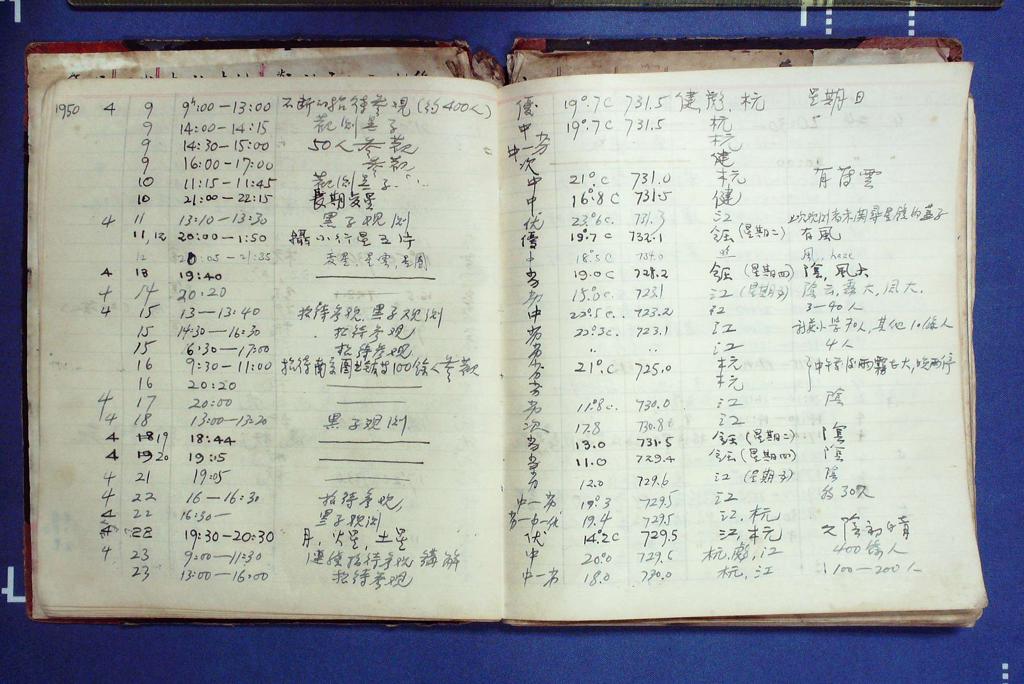 1950 4 9 9ʰ:00-13:00 不断的招待参观 (约400人) 優 19°.7C 731.5 健, 彪, 杭 星期日
9 14:00-14:15 觀測黑子 中 19°.7C 731.5 杭
9 14:30-15:00 50人参觀 中-劣 杭
9 16:00-17:00 参觀 次 健
10 11:15-11:45 觀測黑子 中 21°C 731.0 杭 有薄雲
10 21:00-22:15 長期变星 中 16°.8C 731.5 健
4 11 13:10-13:30 黑子观测 优 23°.6C 731.3 江
11,12 20:00-1:50 攝小行星五片 優 19°.7 732.1 鈺(星期二) 有風
12 :05-21:35 变星, 星雲, 星團 18°.5C 734.0 江 haze
4 13 19:40 劣 19.0C 728.2 鈺(星期四) 陰, 風大
4 14 20:20 劣 15°.0C. 723.1 江 陰云, 霧大, 風大.
4 15 13-13:40 招待参观, 黑子观测 中 22°.5C.. 723.2 江 3-40人
15 14:30-16:30 招待参观 劣 22°.3C. 723.1 江 小学70人, 其他10餘人
15 16:30-17:00 招待参观 劣 .. .. 江 4人
16 9:30-11:00 100餘人参觀 劣 21°.C 725.0 杭
16 20:20 劣 杭
4 17 20:00 劣 11°.8C. 730.0 江 陰
4 18 13:00-13:20 黑子观测 次 17.8 730.8 江
4 19 18:44 劣 13.0 731.5 鈺(星期二) 陰
4 20 19:05 劣 11.0 729.4 鈺(星期四) 陰
4 21 19:05 劣 12.0 729.6 江 陰
4 22 16-16:30 招待参观 中-劣 19°.3 729.5 江 約30人
4 22 16:30- 黑子观测 劣-中-优 19.4 729.5 江, 杭
4 22 19:30-20:30 月, 火星, 土星 优 14°.2C 729.5 江, 杭 久陰初晴
4 23 9:00-11:30 連續招待参观 講解 中 20°.0 729.6 杭, 彪, 江 400餘人
23 13:00-16:00 招待参观 中-劣 18.0 730.0 杭, 江 100-200人